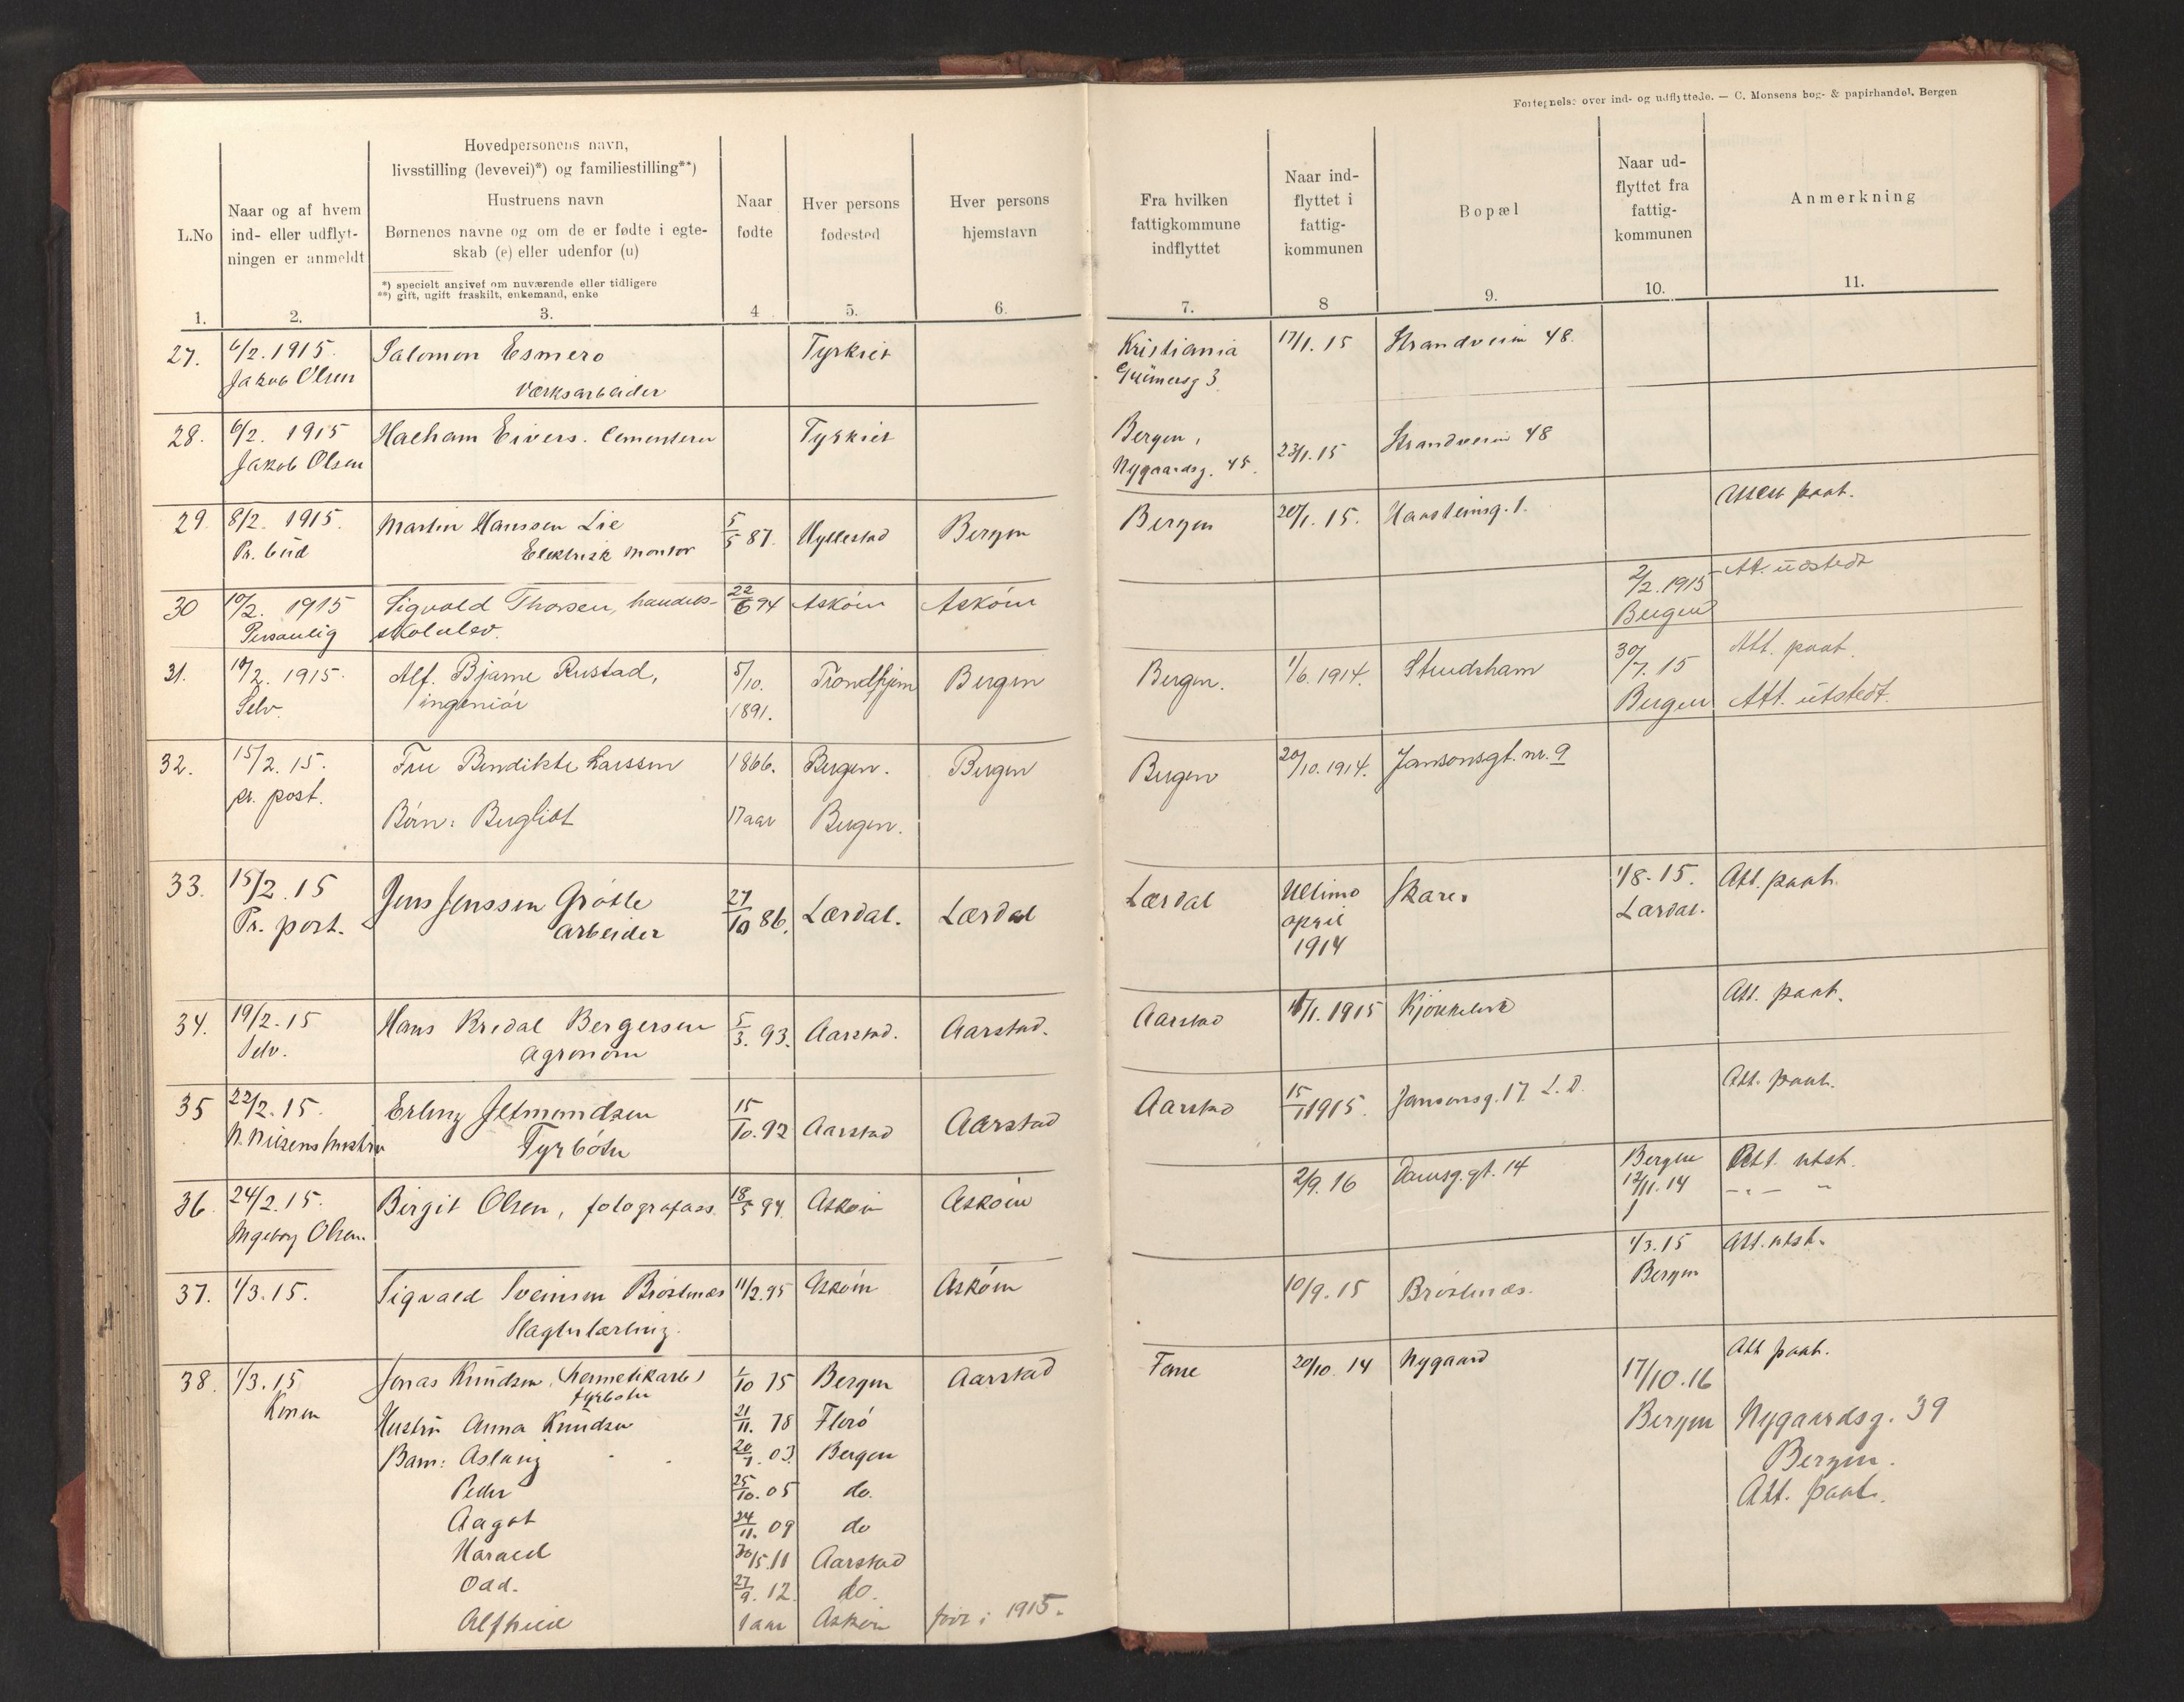 Fortegnelse over ind- og udflyttede. — C. Monsens bog- & papirhandel, Bergen
L.No
1.
Naar og af hvem
ind- eller udflyt-
ningen er anmeldt
2.
Hovedpersonens navn,
livsstilling (levevei)*) og familiestilling**)
Hustruens navn
Børnenes navne og om de er fødte i egte-
skab (e) eller udenfor (u)
*) specielt angivet om nuværende eller tidligere
**) gift, ugift fraskilt, enkemand, enke
3.
Naar
fødte
4
Hver persons
fødested
5.
Hver persons
hjemstavn
6.
Fra hvilken
fattigkommune
indflyttet
7.
Naar ind-
flyttet i
fattig-
kommunen
8
Bopæl
9.
Naar ud-
flyttet fra
fattig-
kommunen
10.
Anmerkning
11.
27. 6/2. 1915. Salomon Esmero Tyrkiet Kristiania 17/1. 15 Strandveien 48.
Jakob Olsen Værksarbeider 3
28. 6/2. 1915 Hacham Eivers. Cementerer Tyrkiet Bergen, 23/1. 15 Strandveien 48
Jakob Olsen Nygaardsg. 45.
29. 8/2. 1915. Martin Hanssen Lie 5/5 87. Hyllestad Bergen Bergen 20/1. 15. Haasteinsg. 1. Attest paat.
Pr. bud Elektrisk montør
30 10/2. 1915 Sigvald Thorsen, handels- 22/6 94 Askøin Askøin 2/2. 1915 Att. udstedt
Personlig skoleelev. Bergen
31. 10/2. 1915. Alf. Bjarne Rustad, 5/10. Trondhjem Bergen Bergen. 1/6. 1914. Strudsham 30/7. 15 Att. paat.
Selv. ingeniør 1891. Bergen Att. utstedt.
32. 15/2. 15. Fru Bendikte Larssen 1866. Bergen. Bergen Bergen 20/10. 1914. Jansonsgt. nr. 9
pr. post. Børn: Bergliot 17 aar Bergen.
33. 15/2. 15 Jens Jenssen Grøtte 27/10 86. Lærdal. Lærdal Lærdal Ultimo Skarer 1/8. 15. Att. paat.
Pr. post. arbeider april Lærdal.
1914
34. 19/2. 15 Hans Kredal Bergersen 5/3. 93. Aarstad. Aarstad. Aarstad 1/1. 1915 Kjøkkelvik Att. paat.
Selv. agronom
35 22/2. 15. Erling Jetmundsen 15/10. 92 Aarstad Aarstad Aarstad 15/1 1915. Jansonsg. 17 L. D. Att. paat.
N. Nilsens hustru Fyrbøter
36. 24/2. 15. Birgit Olsen, fotografass. 18/5 94 Askøin Askøin 2/9. 16 Damsg.gt. 14 Bergen Att. utst.
Ingeborg Olsen. 12/11. 14 — „ — „
37. 1/3. 15. Sigvald Sveinsen Brøstnæs 11/2. 95 Askøin Askøin 10/9. 15 Brøstnæs. 1/3. 15 Att. utst.
Slagterlærling. Bergen
38. 1/3. 15 Jonas Knudsen, (hermetikarb.) 1/10 75 Bergen Aarstad Fane 20/10. 14 Nygaard 17/10. 16 Att paat.
Konen fyrbøter
Hustru Anna Knudsen 21/11. 78 Florø Bergen Nygaardsg. 39
Barn: Aslaug 20/7. 03. Bergen Bergen.
Peder 25/10. 05 do. Att. paat.
Aagot 24/11. 09 do
Harald 30/5. 11 Aarstad
Odd. 27/9. 12. do.
Alfhild 1 aar Askøin født i 1915.